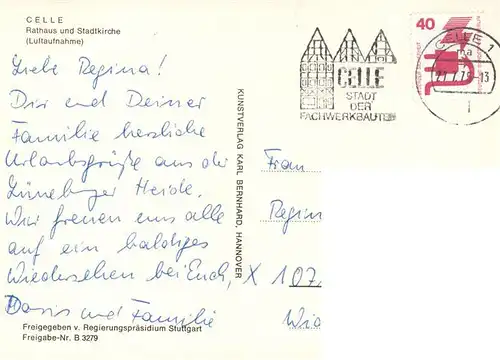 CELLE
Rathaus und Stadtkirche
(Luftaufnahme)
Liebe Regina!
Dir und Deiner
Familie herzliche
Urlaubsgrüße aus der
Lüneburger Heide.
Wir freuen uns alle
auf ein baldiges
Wiedersehen bei Euch,
Doris und Familie
Freigegeben v. Regierungspräsidium Stuttgart
Freigabe-Nr. B 3279
KUNSTVERLAG KARL BERNHARD, HANNOVER
CELLE
STADT
DER
FACHWERKBAUTEN
40
CELLE 1
Frau
Regin
X 107
Wi